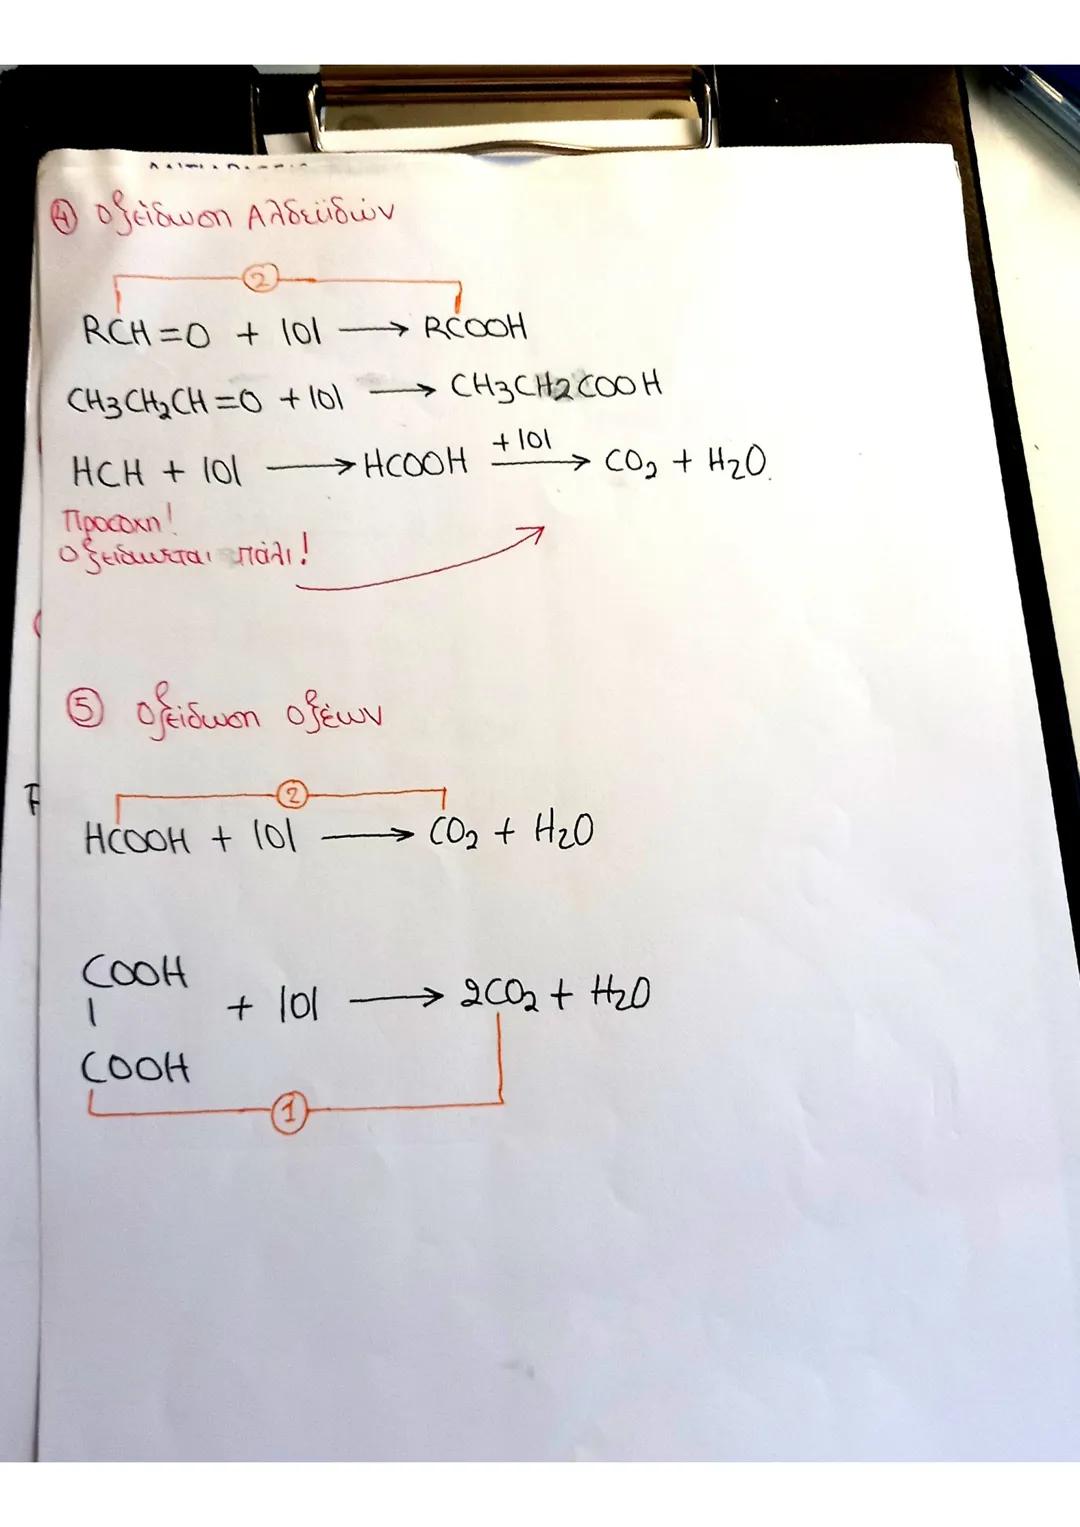 ④ Οξείδωση Αλδεϋδών
②
RCH=O + |O| ⟶ RCOOH
CH3CH2CH=O + |O| ⟶ CH3CH2COOH
HCH + |O| ⟶ HCOOH +|O| ⟶ CO2 + H2O
Προσοχή!
Οξειδώνεται πάλι!
⑤ Οξείδωση οξέων
②
HCOOH + |O| ⟶ CO2 + H2O
COOH
| + |O| ⟶ 2CO2 + H2O
COOH
①